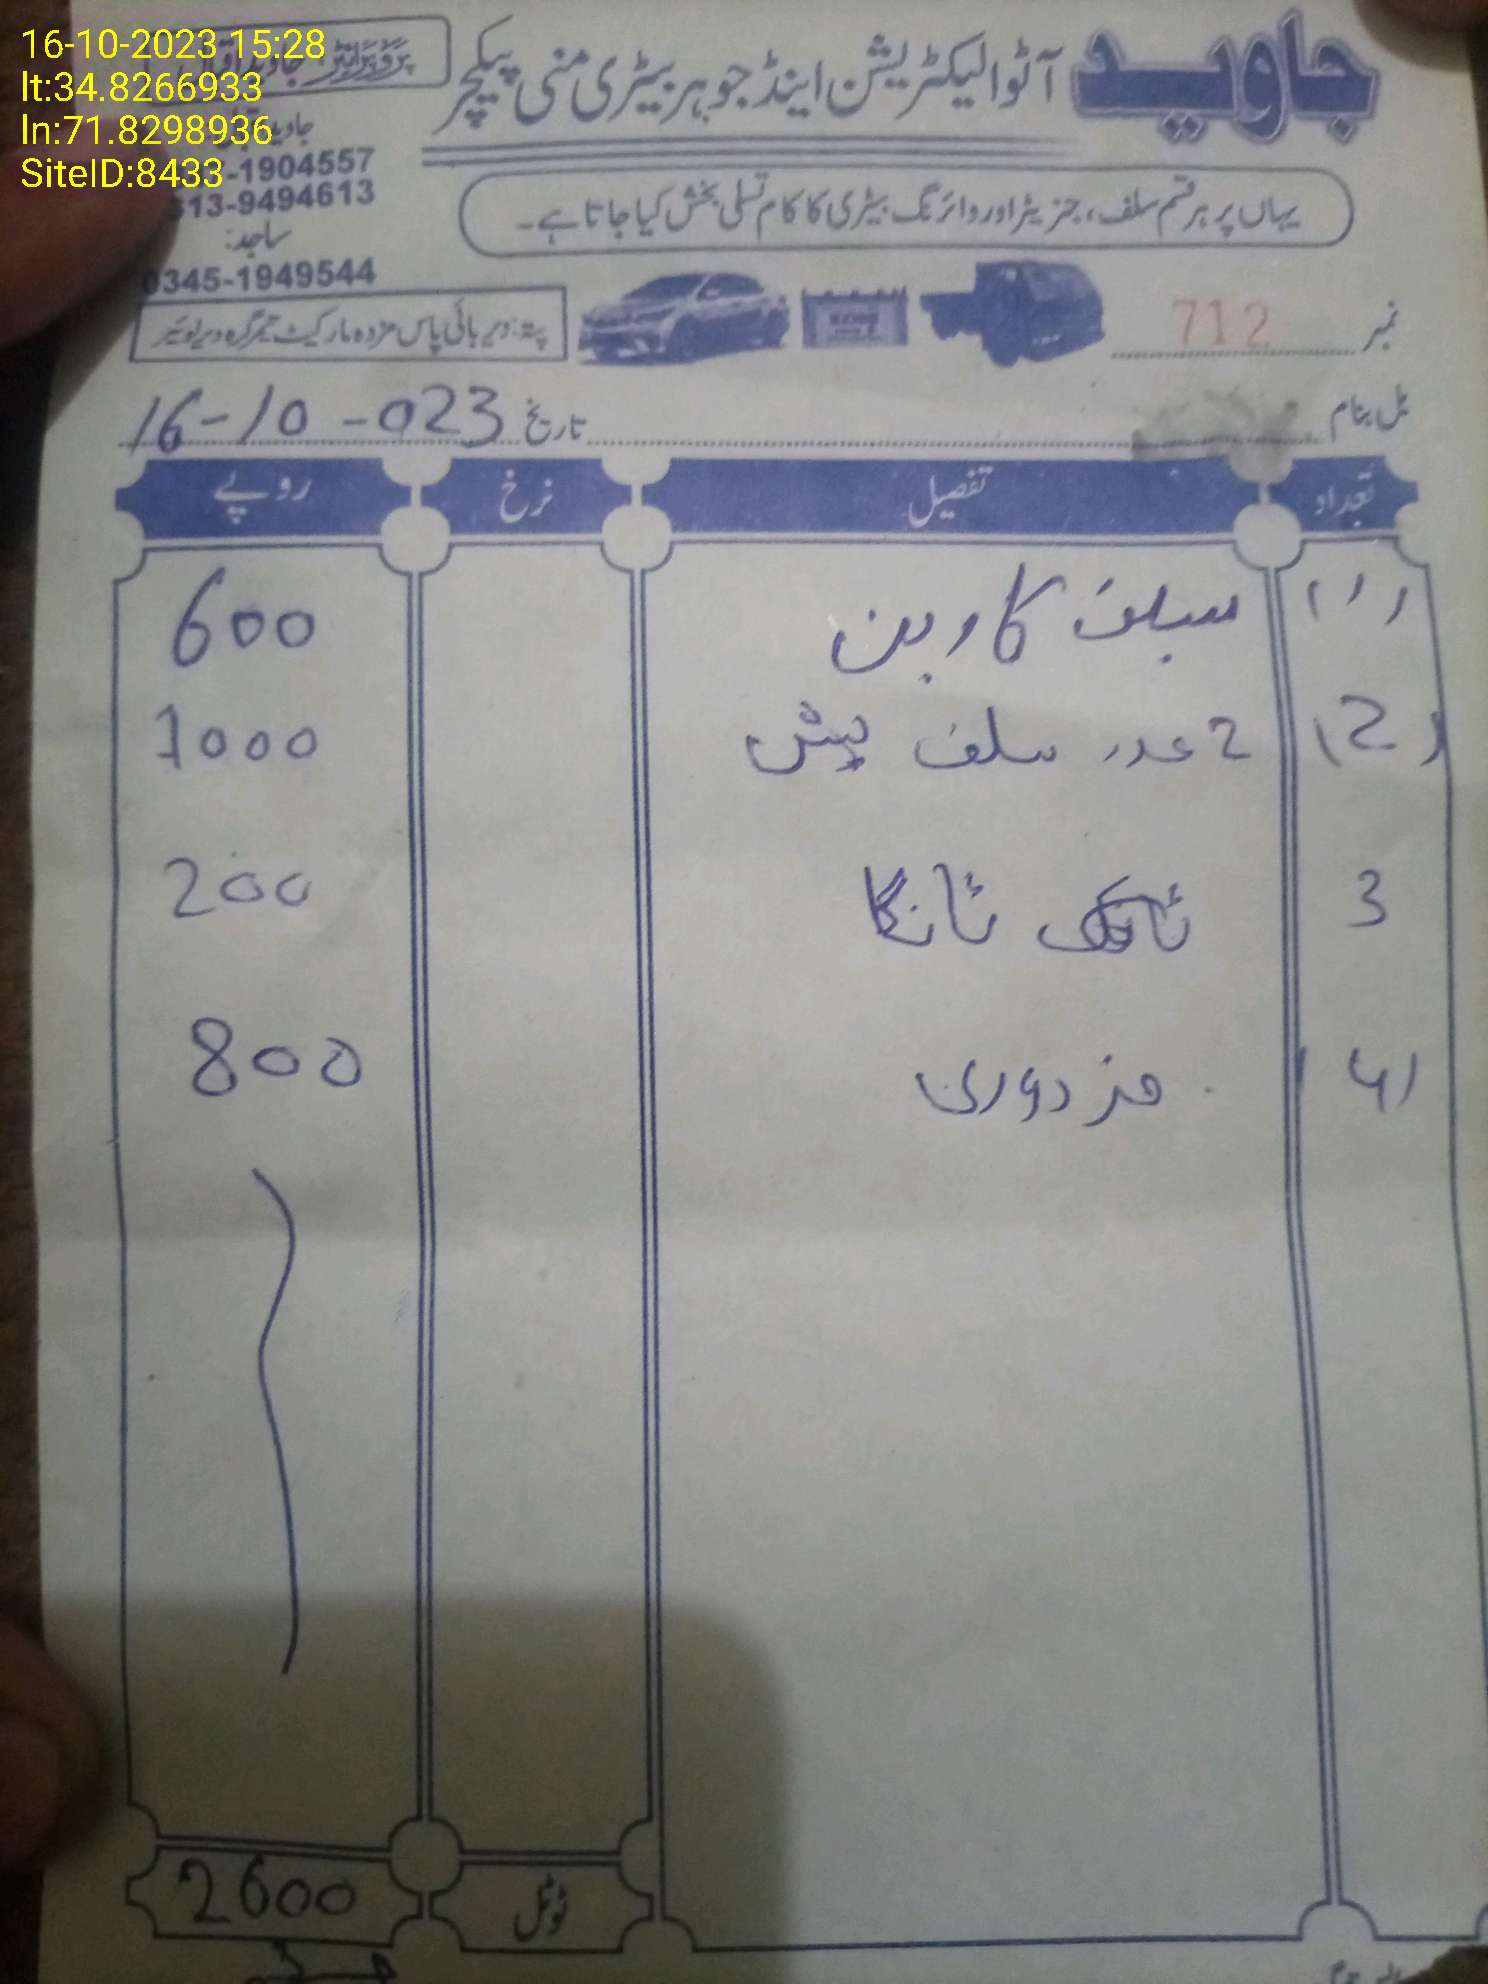 16-10-2023 15:28
lt:34.8266933
ln:71.8298936
SiteID:8433
جاوید آٹو الیکٹریشن اینڈ جوہر بیٹری منی پیکچر
پروپرائیٹر
-1904557
313-9494613
ساجد:
0345-1949544
یہاں پر ہر قسم سلف، جنریٹر اور وائرنگ بیٹری کا کام تسلی بخش کیا جاتا ہے۔
پتہ: دیر بائی پاس مزدہ مارکیٹ تیمرگرہ دیر لوئیر
نمبر 712
بل بنام
تاریخ 16-10-023
تعداد تفصیل نرخ روپے
(1) سیلف کاربن 600
(2) 2 عدد سلف پش 1000
3 ٹانکا 200
(4) مزدوری 800
ٹوٹل 2600